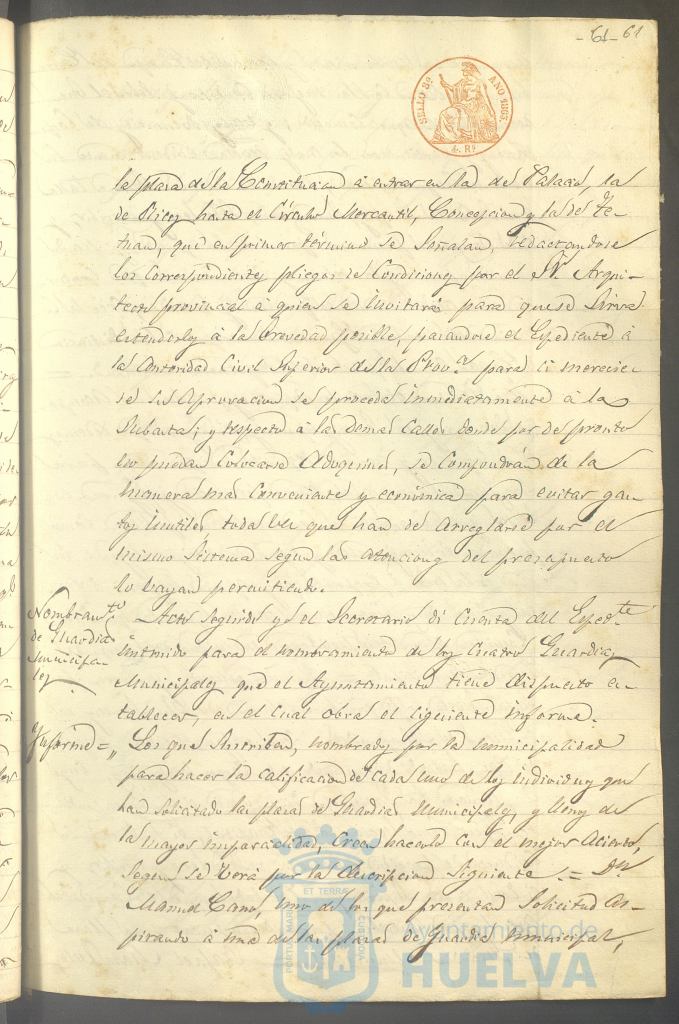 - 61 - 61
SELLO 8º AÑO 1863.
4 Rs
la plaza de la Constitucion á entrar en la del Palacio, la
de Ricos hasta el Círculo Mercantil, Concepcion y la de Te-
tuan, que en primer término se Señalan, redactandose
los Correspondientes pliegos de Condiciones por el Sr. Arqui-
tecto provincial á quien se invitará para que se Sirva
estenderlos á la brevedad posible, pasandose el Espediente á
la Autoridad Civil Superior de la Prova. para si merecie-
se su Aprovacion se proceda inmediatamente á la
Subasta; y respecto á las demas Calles donde por de pronto
no puedan Colocarse Adoquines, se Compondrán de la
manera mas Conveniente y económica para evitar gas-
tos inutiles toda vez que han de Arreglarse por el
mismo Sistema segun las atenciones del presupuesto
lo vayan permitiendo.
Nombramto
de Guardias
municipa-
les
Acto seguido yo el Secretario di Cuenta del Espedte
instruido para el nombramiento de los Cuatro Guardias
Municipales que el Ayuntamiento tiene dispuesto es-
tablecer, en el cual obra el siguiente informe.
Informe = "Los que Suscriben, nombrados por la municipalidad
para hacer la calificacion de cada uno de los individuos que
han solicitado las plazas de Guardias Municipales, y llenos de
la mayor imparcialidad, Creen hacerlo con el mejor Acierto,
segun se verá por la descripcion siguiente. = Dn
Manuel Cano, uno de los que presentan Solicitud As-
pirando á una de las plazas de Guardia Municipal,
PORTUS MARIS ET TERRAE CUSTODIA
Ayuntamiento de
HUELVA